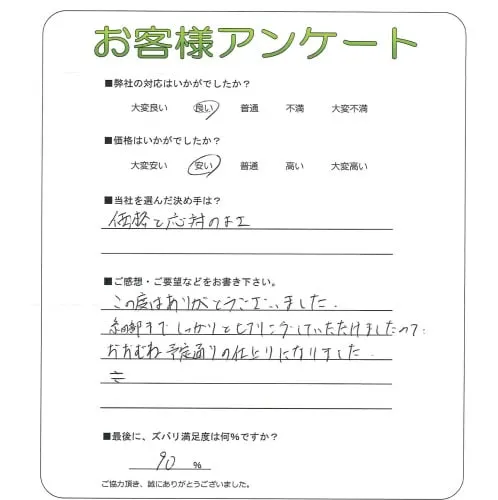 お客様アンケート
■弊社の対応はいかがでしたか？
大変良い 良い 普通 不満 大変不満
■価格はいかがでしたか？
大変安い 安い 普通 高い 大変高い
■当社を選んだ決め手は？
価格と応対のよさ
■ご感想・ご要望などをお書き下さい。
この度はありがとうございました.
細部までしっかりと していただけましたので.
おおむね予定通りの仕上りになりました.
■最後に、ズバリ満足度は何%ですか？
90 %
ご協力頂き、誠にありがとうございました。